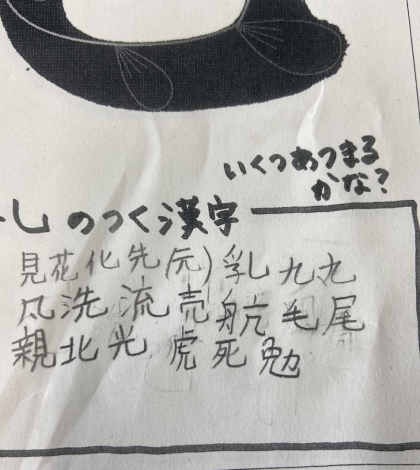 いくつあつまる
かな?
し のつく漢字
見花化先(元)乳九丸
凡洗流売航毛尾
親北光虎死勉